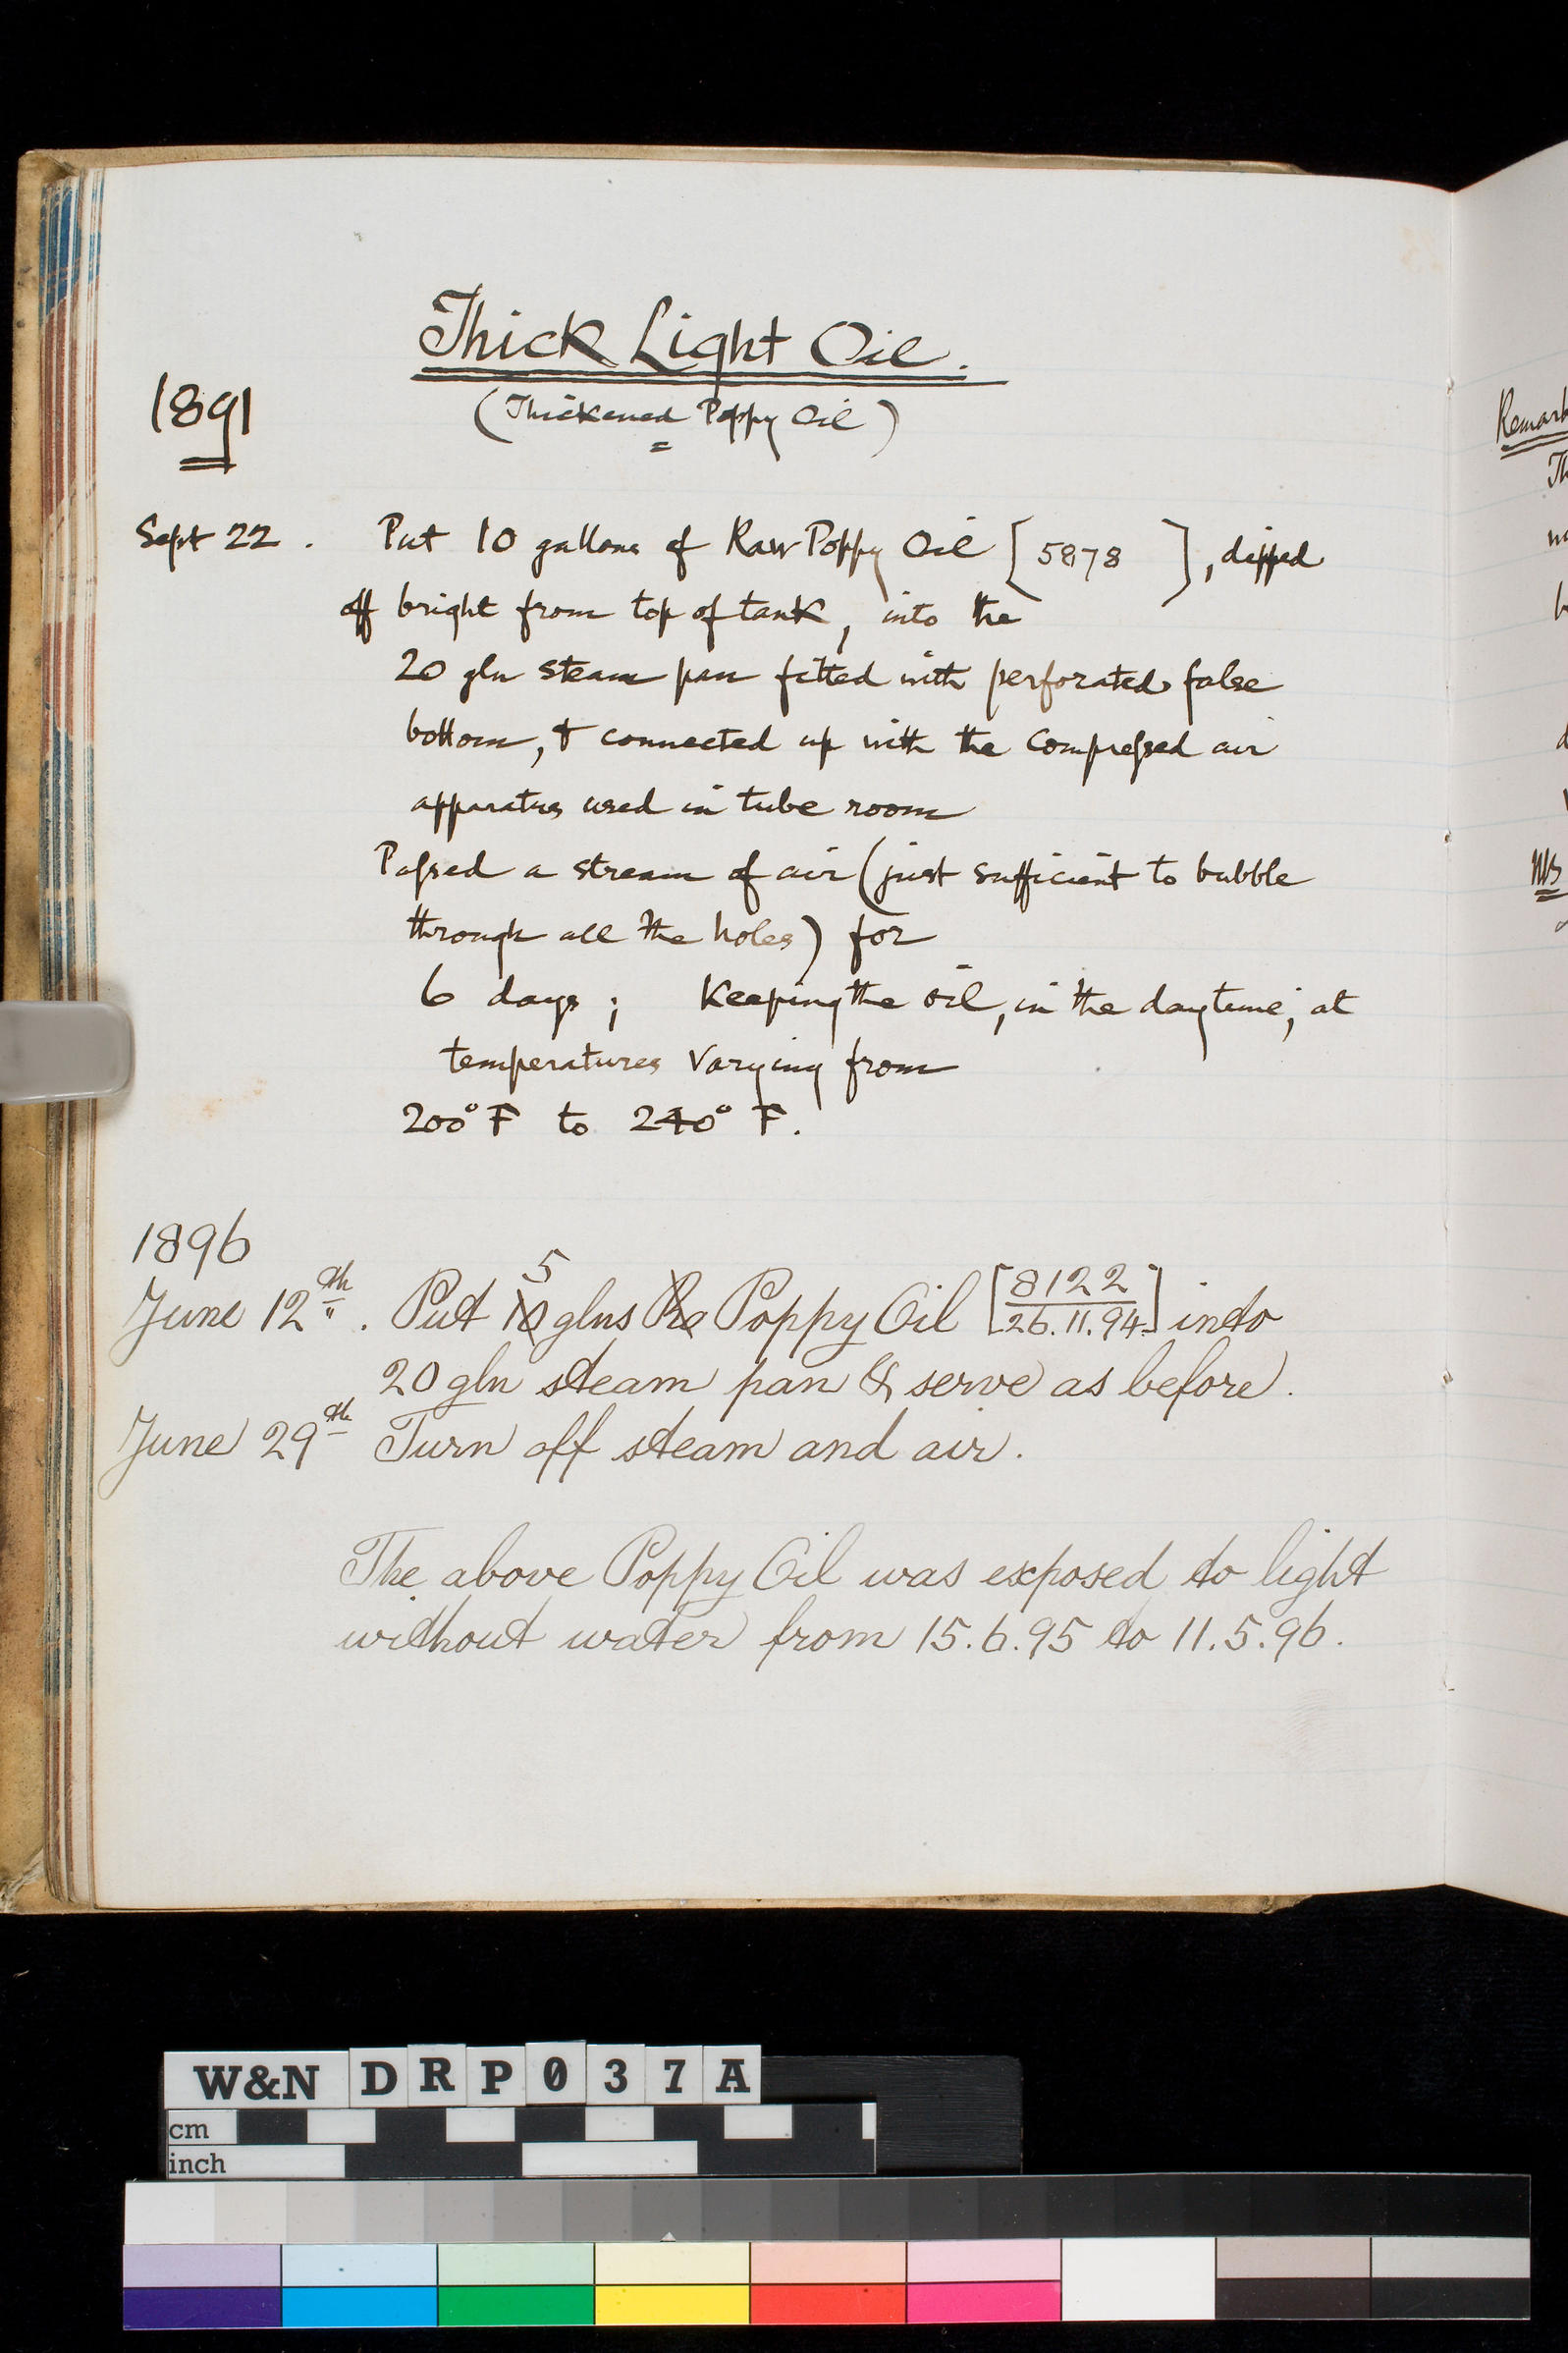 Thick Light Oil.
1891
(Thickened Poppy Oil)
Sept 22. Put 10 gallons of Raw Poppy Oil [5878 ], dipped
off bright from top of tank, into the
20 gln steam pan fitted with perforated false
bottom, & connected up with the compressed air
apparatus used in tube room
Passed a stream of air (just sufficient to bubble
through all the holes) for
6 days; Keeping the oil, in the daytime, at
temperatures varying from
200° F to 240° F.
1896
June 12th. Put 10 5 glns Re Poppy Oil [8122 / 26.11.94] into
20 gln steam pan & serve as before.
June 29th Turn off steam and air.
The above Poppy Oil was exposed to light
without water from 15.6.95 to 11.5.96.
Remark
Th
W&N DRP037A
cm
inch